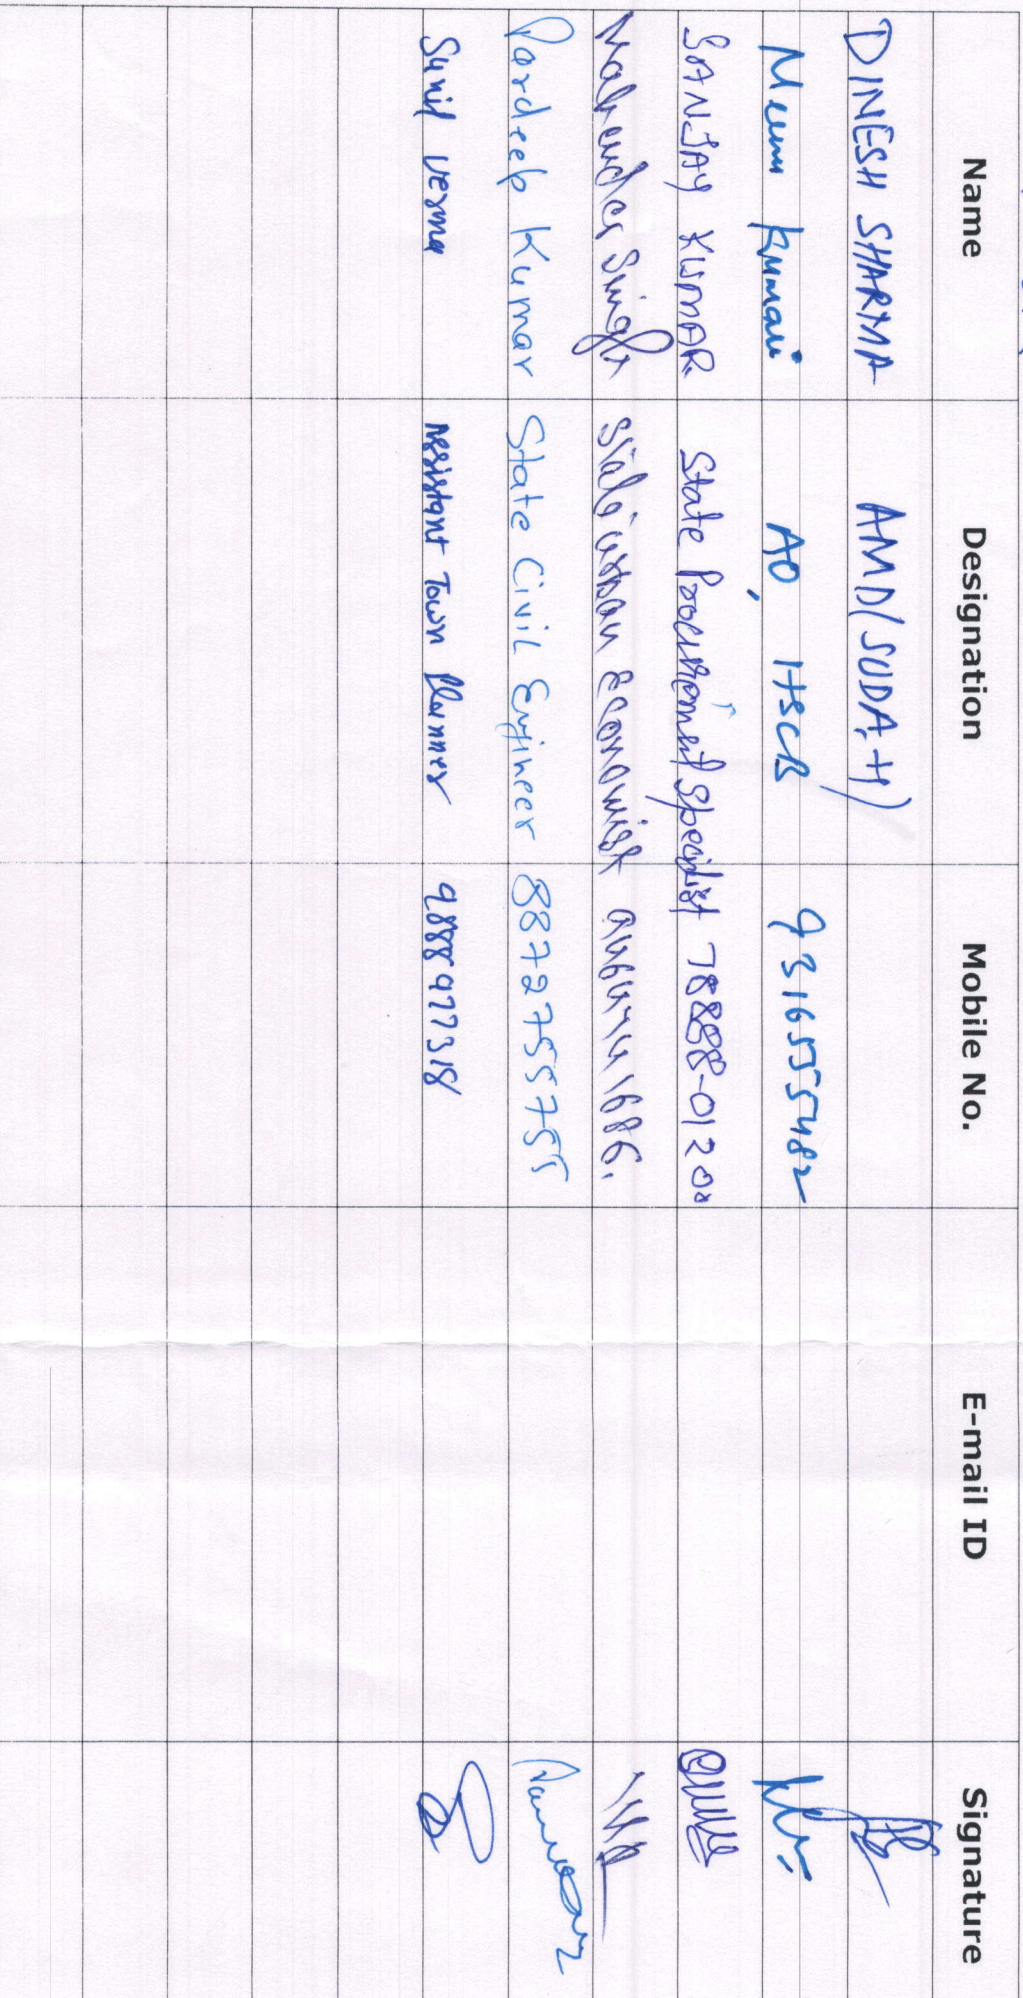 Name Designation Mobile No. E-mail ID Signature
DINESH SHARMA AMD(SUDA,H)
Meenu Kumari AO, HSCB 9316555482
SANJAY KUMAR State Procurement Specialist 78888-01200
Mahender Singh State urban Economist
Pardeep Kumar State Civil Engineer 8872755755
Sunil Verma Assistant Town Planner 9888977318